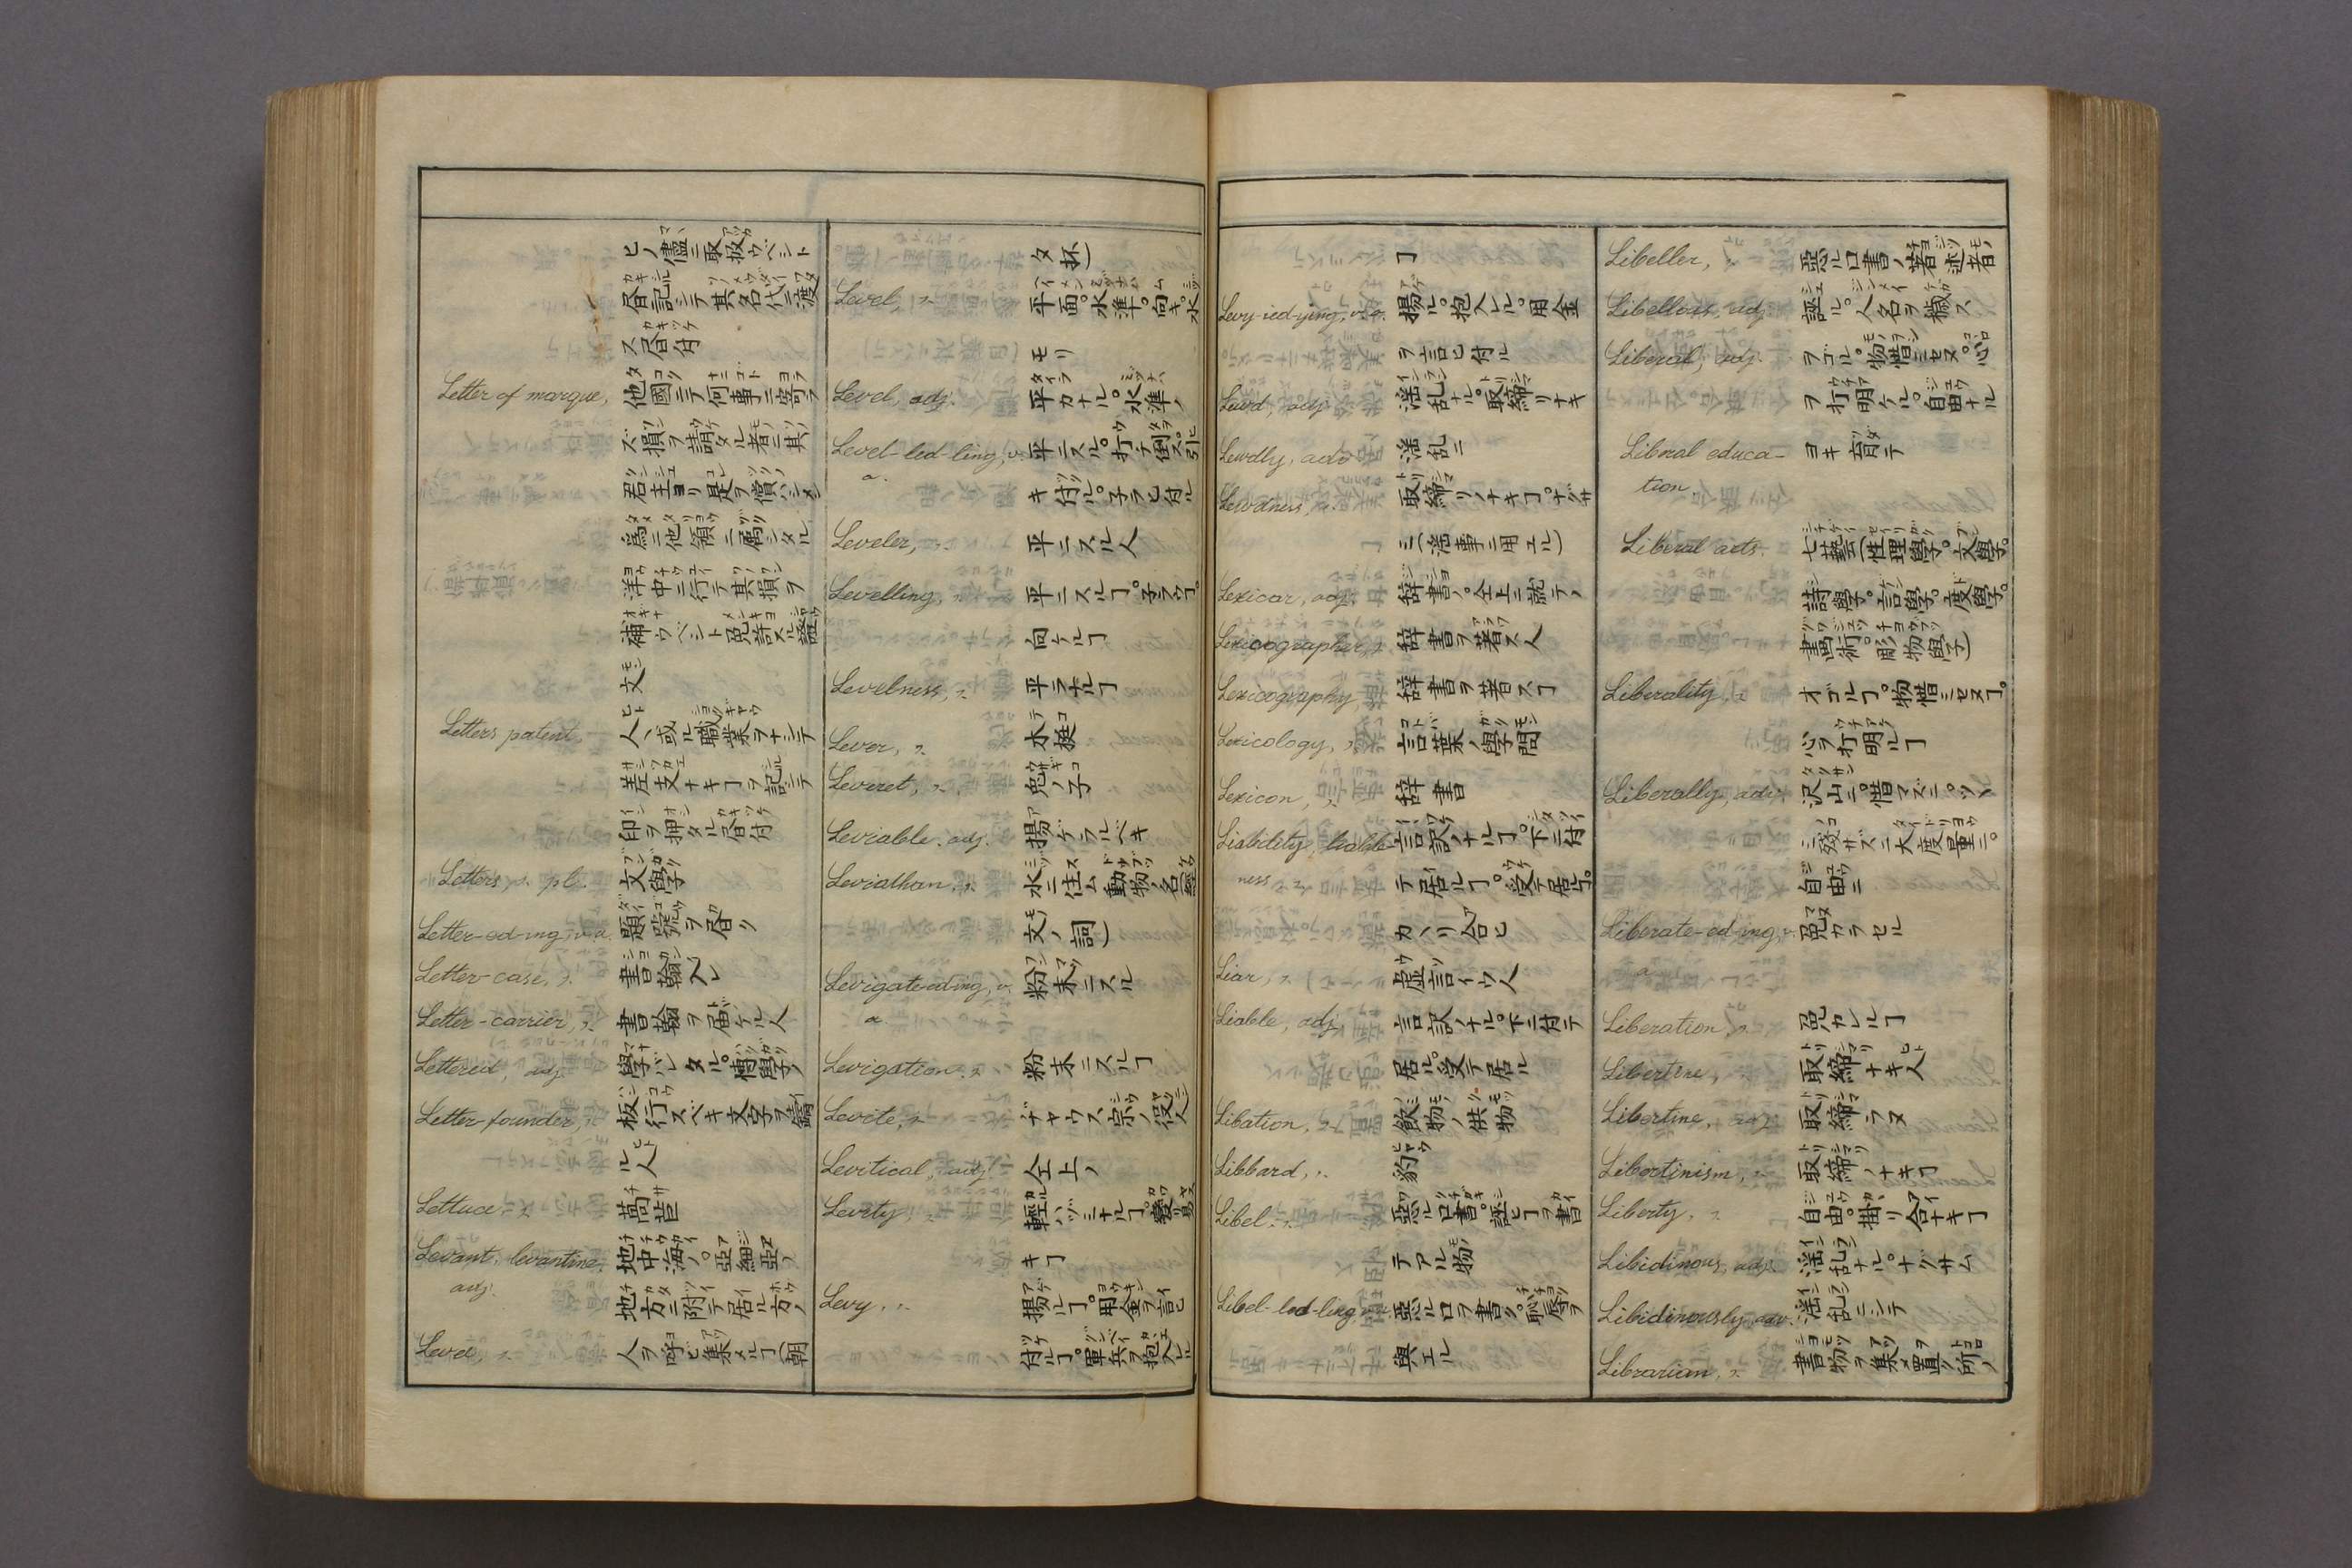 ヒノ儘ニ取扱ウベシト
昏記シテ其名代ニ渡
ス昏付
Letter of marque, 他國ニテ何事ニ寄ラ
ズ損ヲ請タル者ニ其
君主ヨリ是ヲ償ハシメン
為ニ他領ニ属シタル
洋中ニ行テ其損ヲ
補ウベシト免許スル證
文
Letters patent, 人、或ル職業ヲナシテ
差支ナキヿヲ記シテ
印ヲ押タル昏付
Letters, s. pl. 文學
Letter-ed-ing, v. a. 題號ヲ昏ク
Letter-case, s. 書翰入レ
Letter-carrier, s. 書翰ヲ届ケル人
Lettered, adj. 學バレタル。博學ノ
Letter-founder, s. 板行スベキ文字ヲ鑄
ル人
Lettuce, s. 萵苣
Levant, levantine, 地中海ノ。亞細亞ノ
adj. 地方ニ附テ居ル方ノ
Levee, s. 人ヲ呼ヒ集メルヿ(朝
タ抔)
Level, s. 平面。水準。向キ。水
モリ
Level, adj. 平カナル。水準ノ
Level-led-ling, v. 平ニスル。打テ倒ス。引
a. キ付ル。子ラヒ付ル
Leveler, s. 平ニスル人
Levelling, s. 平ニスルヿ。子ラウヿ。
向ケルヿ
Levelness, s. 平ラナルヿ
Lever, s. 木挺
Leveret, s. 兎ノ子
Leviable, adj. 揚ゲラルベキ
Leviathan, s. 水ニ住ム動物ノ名(經
文ノ詞)
Levigate-ed-ing, v. 粉末ニスル
a.
Levigation, s. 粉末ニスルヿ
Levite, s. ヂヤウス宗ノ役人
Levitical, adj. 仝上ノ
Levity, s. 輕ハヅミナルヿ。變リ易
キヿ
Levy, s. 揚ルヿ。用金ヲ言ヒ
付ルヿ。軍兵ヲ抱入ル
ヿ
Levy-ied-ying, v. a. 揚ル。抱入レル。用金
ヲ言ヒ付ル
Lewd, adj. 淫乱ナル。取締リナキ
Lewdly, adv. 淫乱ニ
Lewdness, s. 取締リノナキヿ。ナグサ
ミ(淫事ニ用エル)
Lexicar, adj. 辞書ノ。仝上ニ就テノ
Lexicographer, s. 辞書ヲ著ス人
Lexicography, 辞書ヲ著スヿ
Lexicology, s. 言葉ノ學問
Lexicon, s. 辞書
Liability, liable- 言訳ノナルヿ。下ニ付
ness, s. テ居ルヿ。受テ居ルヿ。
カヽリ合ヒ
Liar, s. 虚言イウ人
Liable, adj. 言訳ノナル。下ニ付テ
居ル。受テ居ル
Libation, s. 飲物ノ供物
Libbard, s. 豹
Libel, s. 惡ル口書。誣ヒヿヲ書
テアル物
Libel-led-ling, v. a. 惡ル口ヲ書ク。恥辱ヲ
與エル
Libeller, s. 惡ル口書ノ著述者
Libellous, adj. 誣ル。人名ヲ穢ス
Liberal, adj. ヲゴル。物惜ミセヌ。心
ヲ打明ケル。自由ナル
Liberal educa- ヨキ育テ
tion
Liberal arts, 七藝(性理學。文學。
詩學。言學。度學。
畫術。彫物學)
Liberality, s. オゴルヿ。物惜ミセヌヿ。
心ヲ打明ルヿ
Liberally, adv. 沢山ニ。惜マズニ。ツヽ
ミ殘サズニ。大度量ニ。
自由ニ
Liberate-ed-ing, v. 免カラセル
a.
Liberation, s. 免カレルヿ
Libertine, s. 取締ナキ人
Libertine, adj. 取締ラヌ
Libertinism, s. 取締ノナキヿ
Liberty, s. 自由。掛リ合ナキヿ
Libidinous, adj. 淫乱ナル。ナグサム
Libidinously, adv. 淫乱ニシテ
Librarian, s. 書物ヲ集メ置ク所ノ